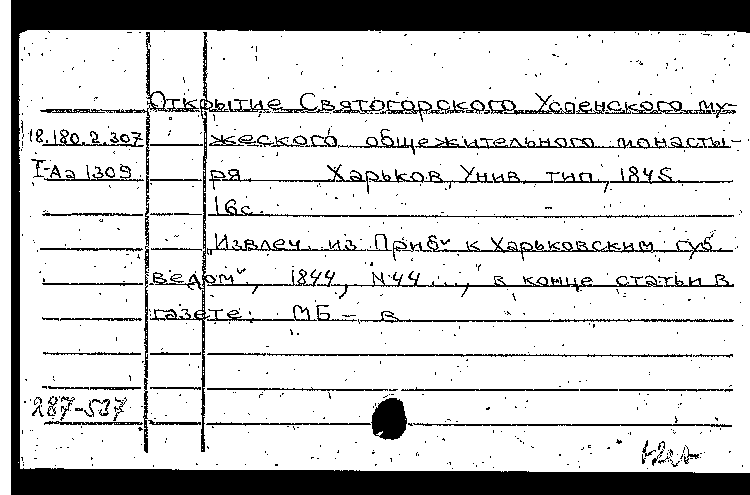 Открытие Святогорского Успенского му-
18.180.2.307 жеского общежительного монасты-
I-Аа 1309 ря. Харьков, Унив. тип., 1845.
16с.
Извлеч. из "Приб" к Харьковским губ.
ведом", 1844, N44...," в конце статьи в
газете: МБ – в
287-537